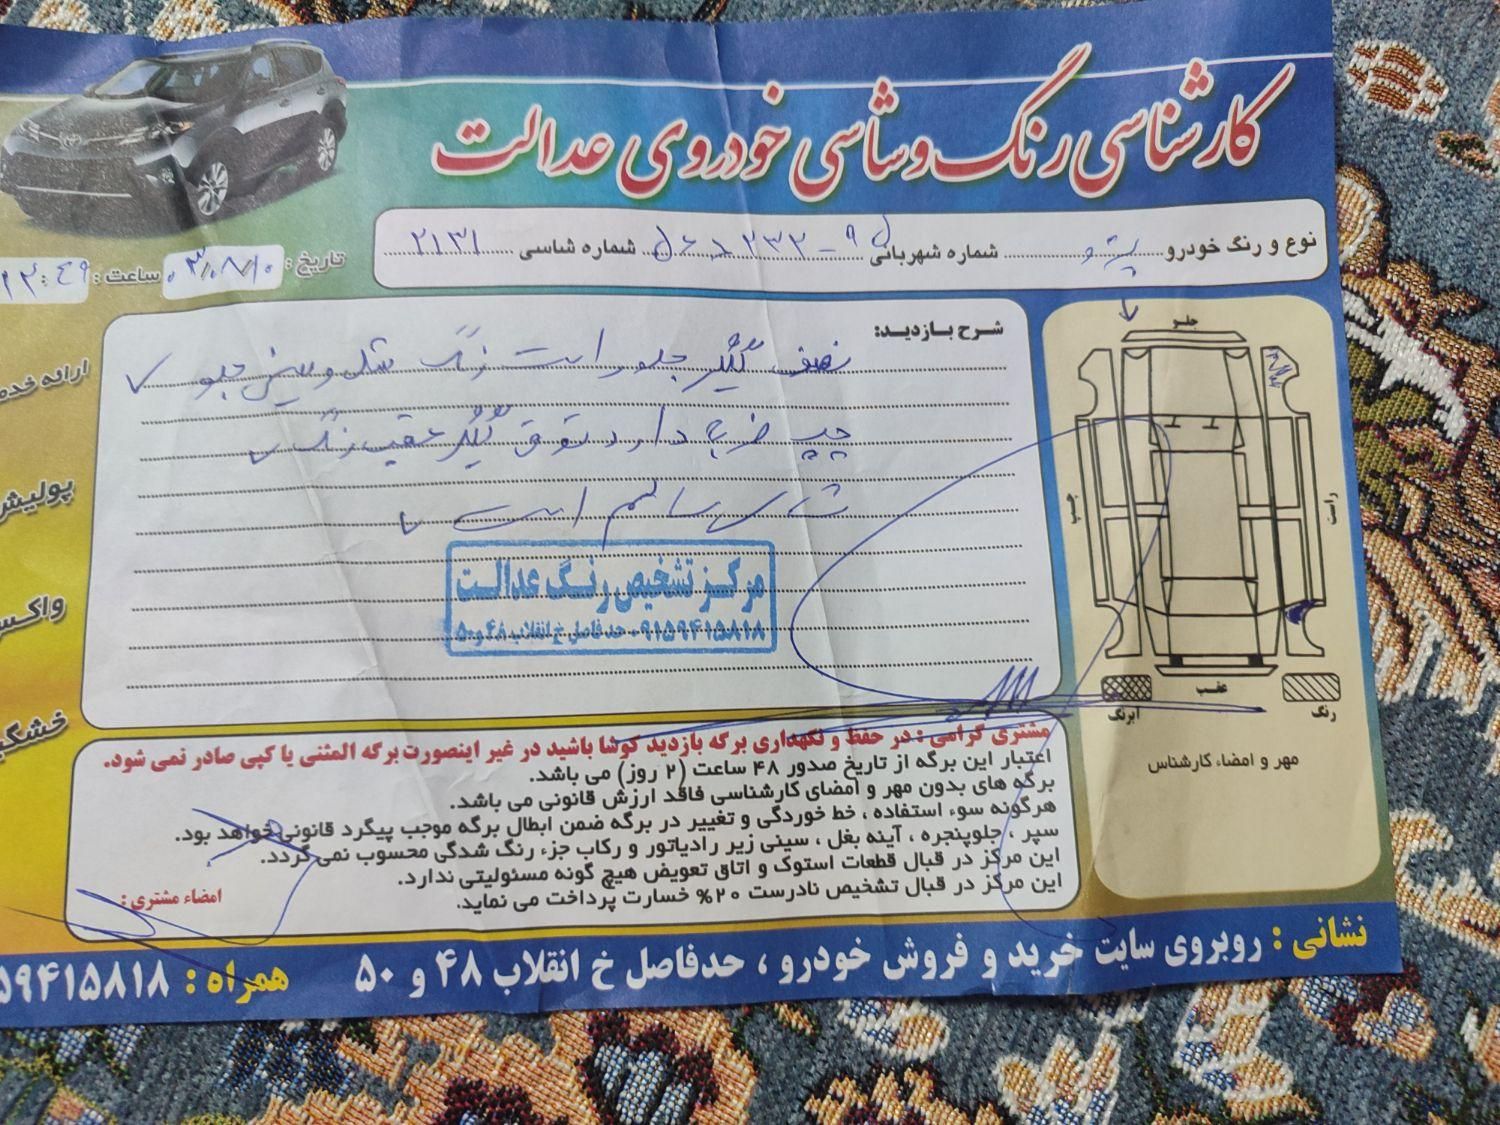 کارشناسی رنگ و شاسی خودروی عدالت
نوع و رنگ خودرو پژو شماره شهربانی شماره شاسی ۲۱۳۱
تاریخ : ۰۳/۰۸/۱۰ ساعت : ۱۲:۴۹
شرح بازدید:
نصف گلگیر جلو راست رنگ شده و سینی جلو
چپ ضربه دارد ستون گلگیر عقب رنگ
شاسی سالم است
مرکز تشخیص رنگ عدالت
۰۹۱۵۹۴۱۵۸۱۸-حدفاصل خ انقلاب ۴۸ و ۵۰
جلو
چپ
راست
عقب
ابرنگ
رنگ
مهر و امضاء کارشناس
ارائه خدم
پولیش
واکس
خشک
مشتری گرامی : در حفظ و نگهداری برگه بازدید کوشا باشید در غیر اینصورت برگه المثنی یا کپی صادر نمی شود.
اعتبار این برگه از تاریخ صدور ۴۸ ساعت (۲ روز) می باشد.
برگه های بدون مهر و امضای کارشناسی فاقد ارزش قانونی می باشد.
هرگونه سوء استفاده ، خط خوردگی و تغییر در برگه ضمن ابطال برگه موجب پیگرد قانونی خواهد بود.
سپر ، جلوپنجره ، آینه بغل ، سینی زیر رادیاتور و رکاب جزء رنگ شدگی محسوب نمی گردد.
این مرکز در قبال قطعات استوک و اتاق تعویض هیچ گونه مسئولیتی ندارد.
این مرکز در قبال تشخیص نادرست ۲۰% خسارت پرداخت می نماید.
امضاء مشتری :
نشانی : روبروی سایت خرید و فروش خودرو ، حدفاصل خ انقلاب ۴۸ و ۵۰
همراه : ۵۹۴۱۵۸۱۸